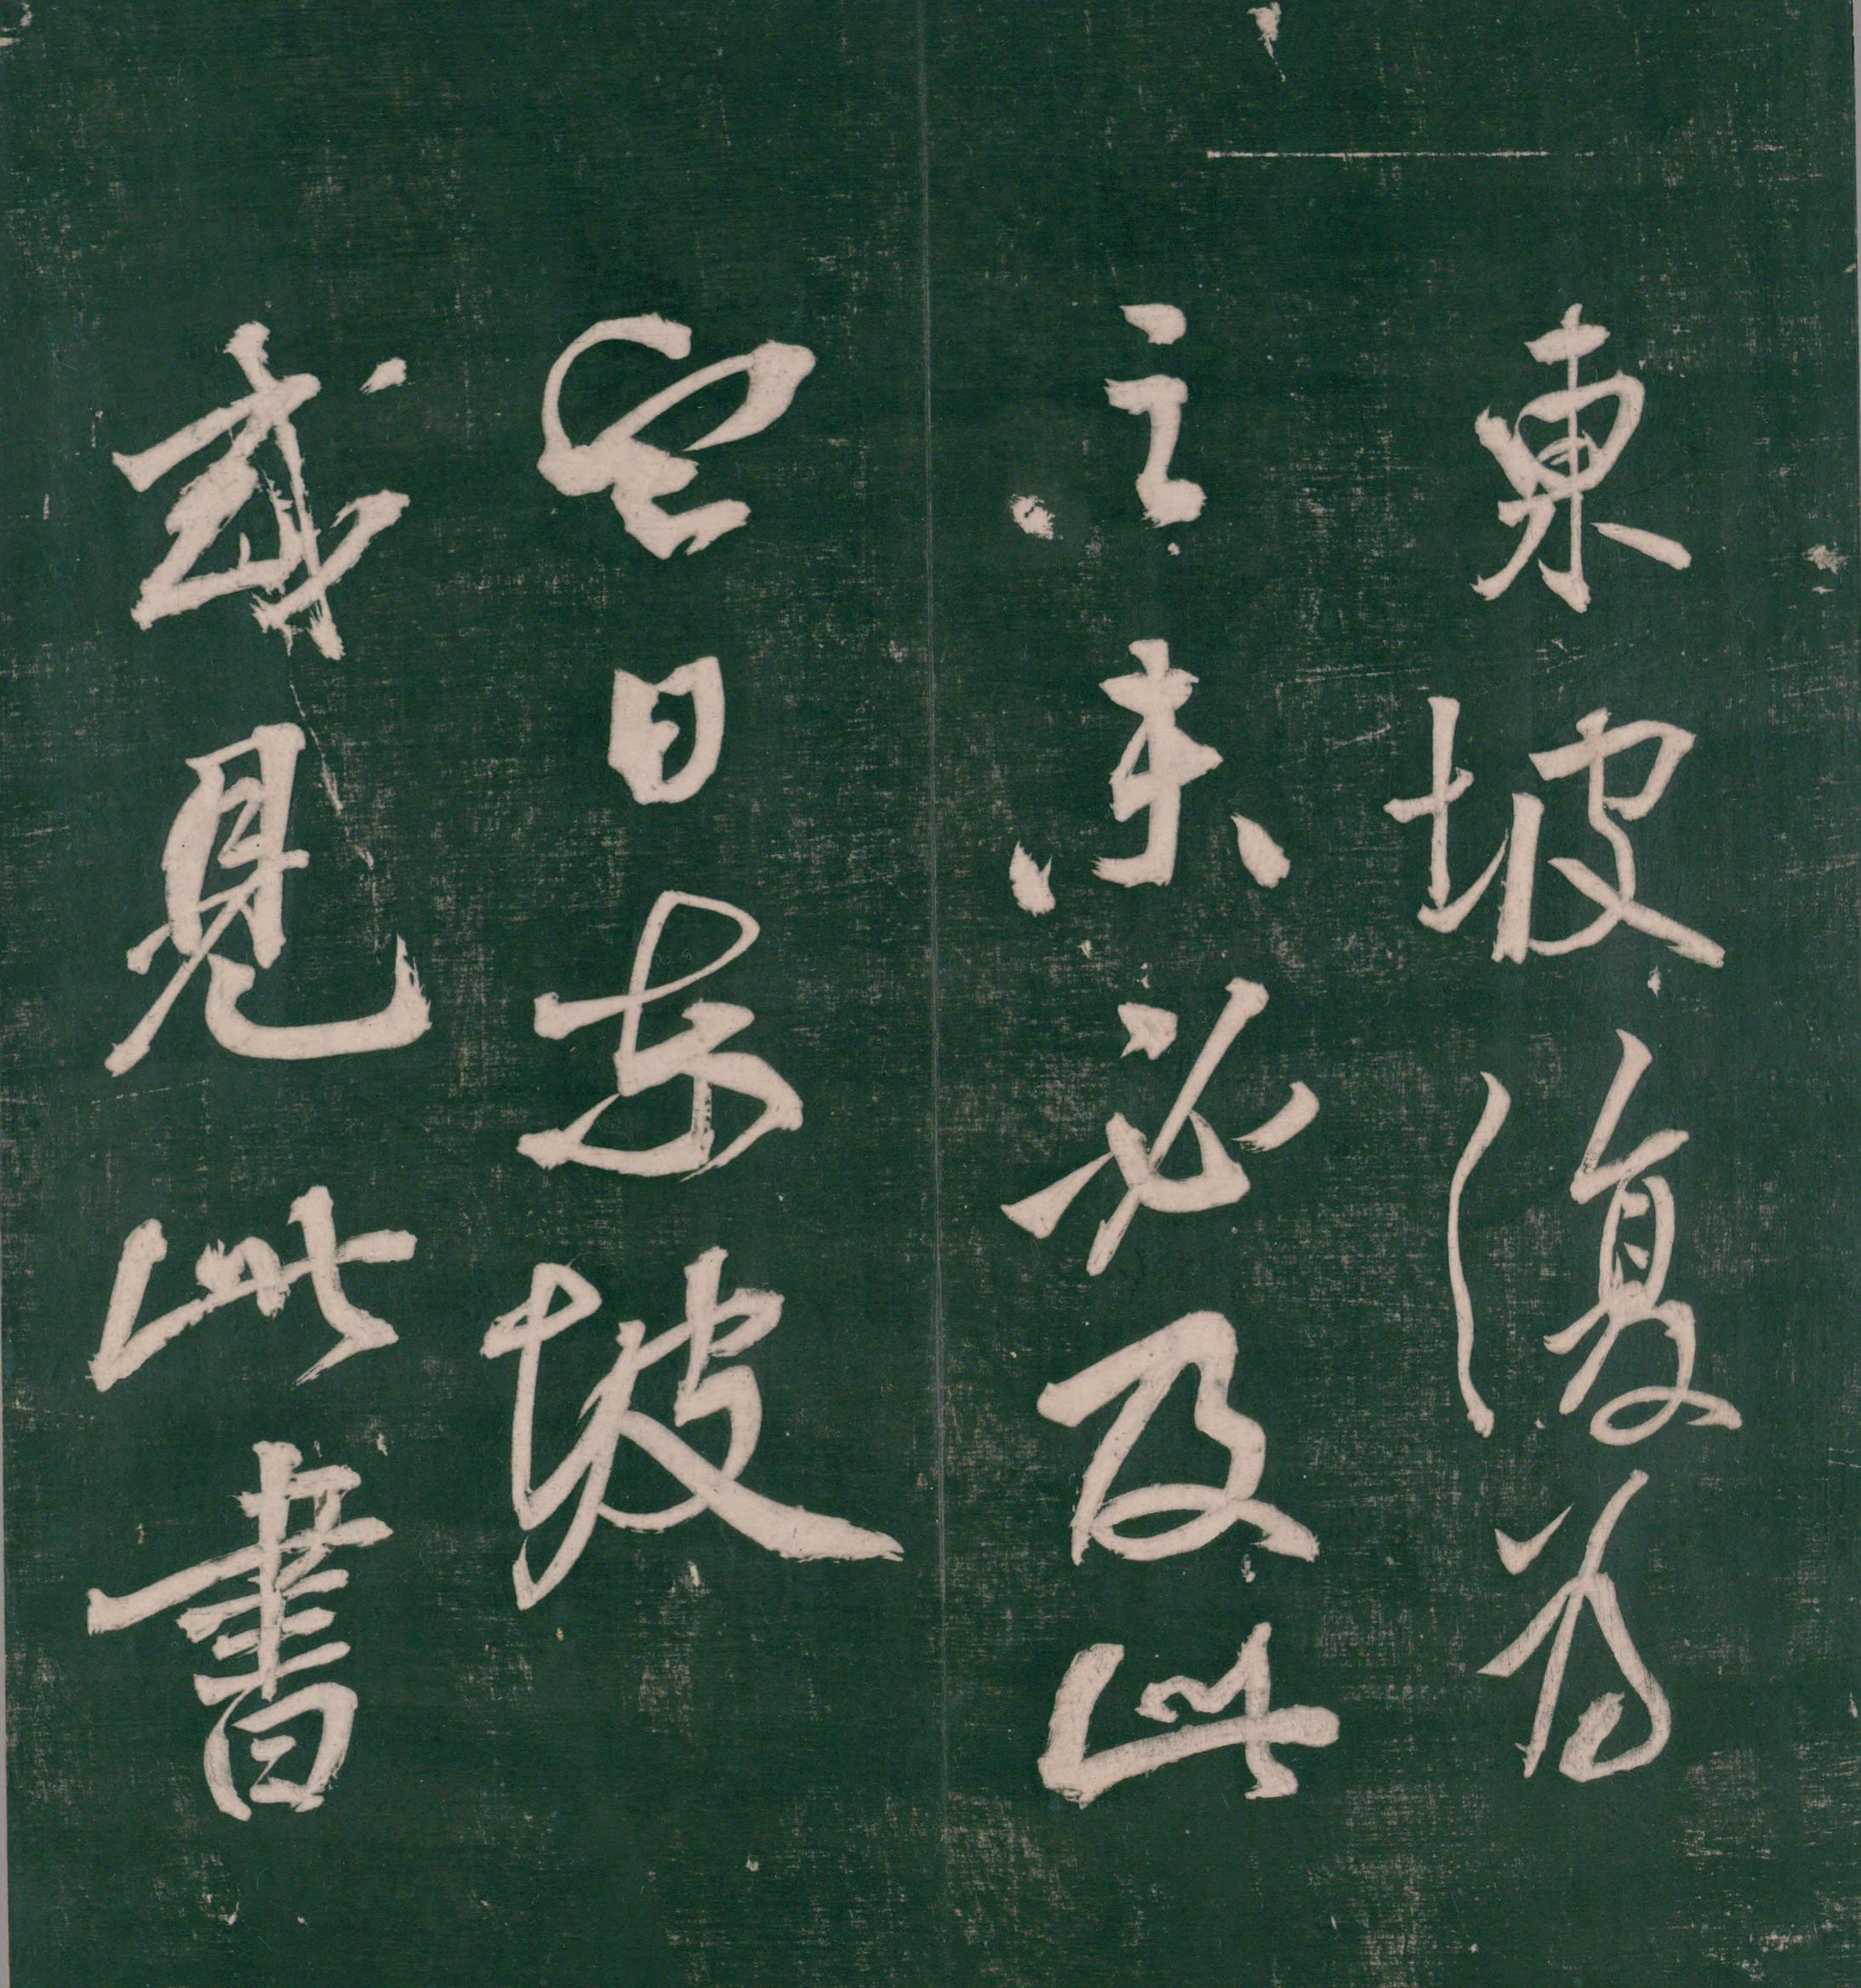 東坡復為
之未必及此
它日東坡
或見此書